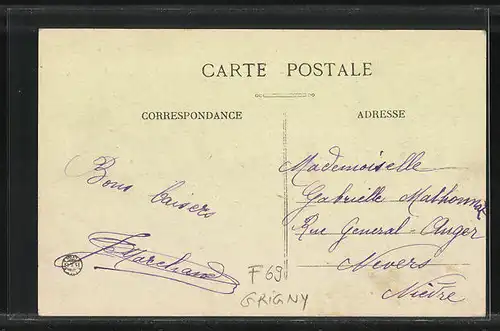 CARTE POSTALE
CORRESPONDANCE
ADRESSE
Bons baisers
J Marchand
Mademoiselle
Gabrielle Mathonnat
Rue General-Auger
Nevers
Nièvre
F 69
GRIGNY